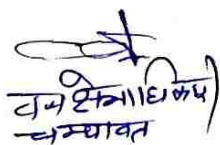 वन क्षेत्राधिकारी
चम्पावत